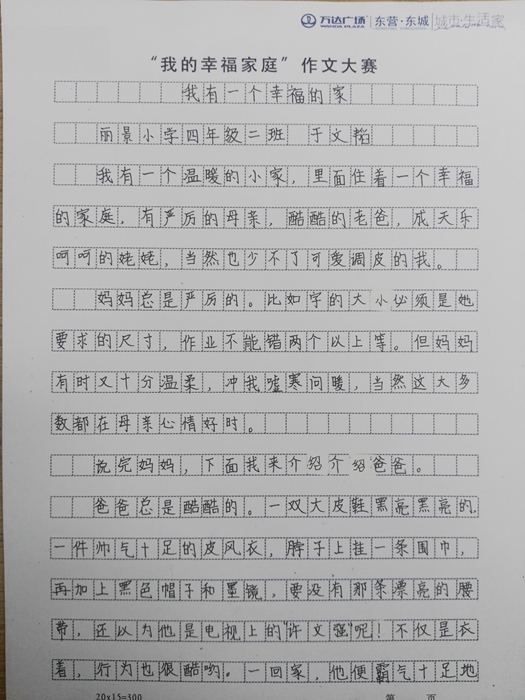 万达广场 东营·东城 城市·生活家
WANDA PLAZA
“我的幸福家庭”作文大赛
我有一个幸福的家
丽景小学四年级二班 于文韬
我有一个温暖的小家，里面住着一个幸福
的家庭，有严厉的母亲，酷酷的老爸，成天乐
呵呵的姥姥，当然也少不了可爱调皮的我。
妈妈总是严厉的。比如字的大小必须是她
要求的尺寸，作业不能错两个以上等。但妈妈
有时又十分温柔，冲我嘘寒问暖，当然这大多
数都在母亲心情好时。
说完妈妈，下面我来介绍介绍爸爸。
爸爸总是酷酷的。一双大皮鞋黑亮黑亮的，
一件帅气十足的皮风衣，脖子上挂一条围巾，
再加上黑色帽子和墨镜，要没有那条漂亮的腰
带，还以为他是电视上的“许文强”呢！不仅是衣
着，行为也很酷哟。一回家，他便霸气十足地
20×15=300 第 页